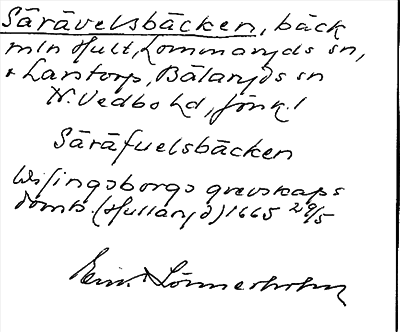 Säräv​elsbäcken, bäck
mln Hult, Lommaryds sn,
o Lantorp, Bälaryds sn
N. Vedbo hd, Jönk. l
Säräfuelsbäcken
Wisingsborgs grevskaps
domb. (Hullaryd) 1665 29/5
Einar Lönnerholm